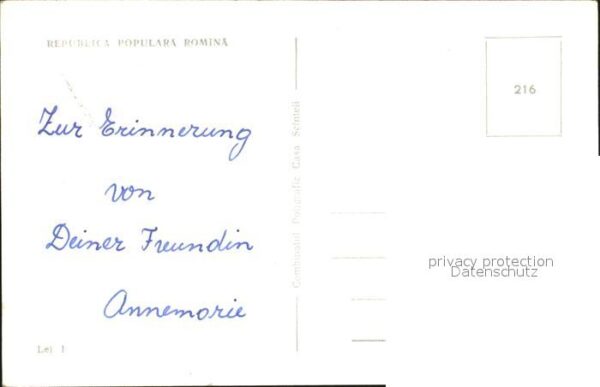 REPUBLICA POPULARĂ ROMÎNĂ
216
Zur Erinnerung
von
Deiner Freundin
Annemarie
Lei 1
Combinatul Poligrafic Casa Scînteii
privacy protection
Datenschutz